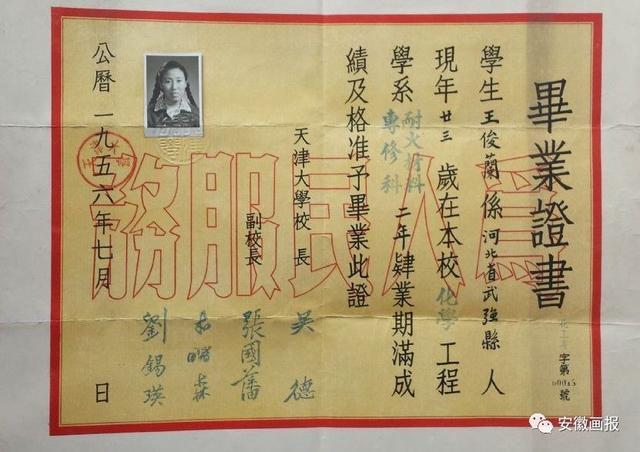 畢業證書
字第 號
學生王俊蘭係河北省武強縣人
現年廿三歲在本校化學工程
學系耐火材料專修科二年肄業期滿成
績及格准予畢業此證
天津大學校長 吳德
副校長 張國藩
李曙森
劉錫瑛
公曆一九五六年七月 日
爲人民服務
安徽画报